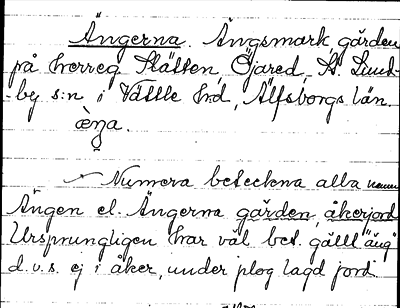 Ängerna. Ängsmark, gården
på herreg Slätten, Öjared, St. Lund-
by s:n i Vättle hrd, Älfsborgs län.
èŋa.
Numera beteckna alla namn
Ängen el. Ängerna gården, åkerjord
Ursprungligen har väl bet. gällt "äng"
d.v.s. ej i åker, under plog lagd jord